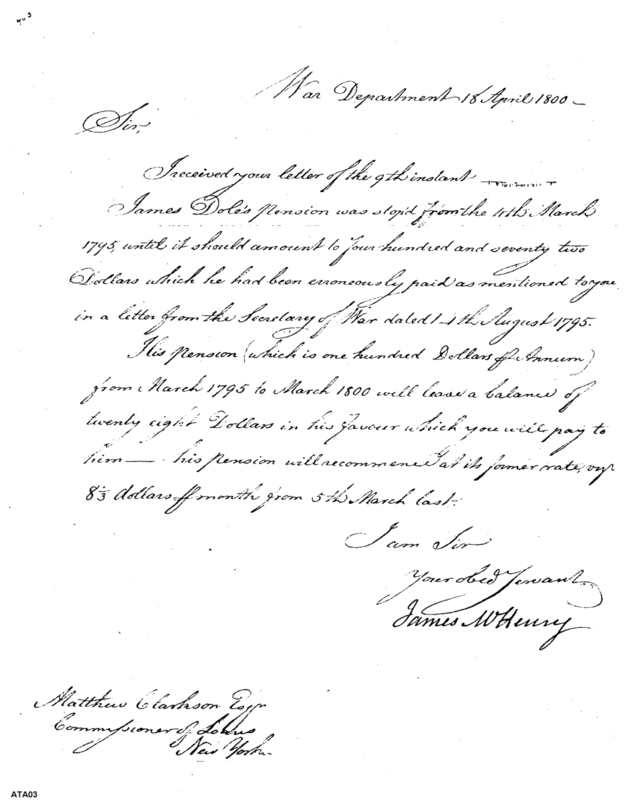 War Department 18 April 1800 —
Sir,
I received your letter of the 9th instant
James Dole's Pension was stop'd from the 4th March
1795, until it should amount to four hundred and seventy two
Dollars which he had been erroneously paid as mentioned to you
in a letter from the Secretary of War dated 14th August 1795.
His pension (which is one hundred Dollars Annum)
from March 1795 to March 1800 will leave a balance of
twenty eight Dollars in his favour which you will pay to
him — his pension will recommence at its former rate,
8⅓ dollars month from 5th March last.
I am Sir
Your obed Servant
James McHenry
Matthew Clarkson Esqr
Commissioner of Loans
New York
ATA03